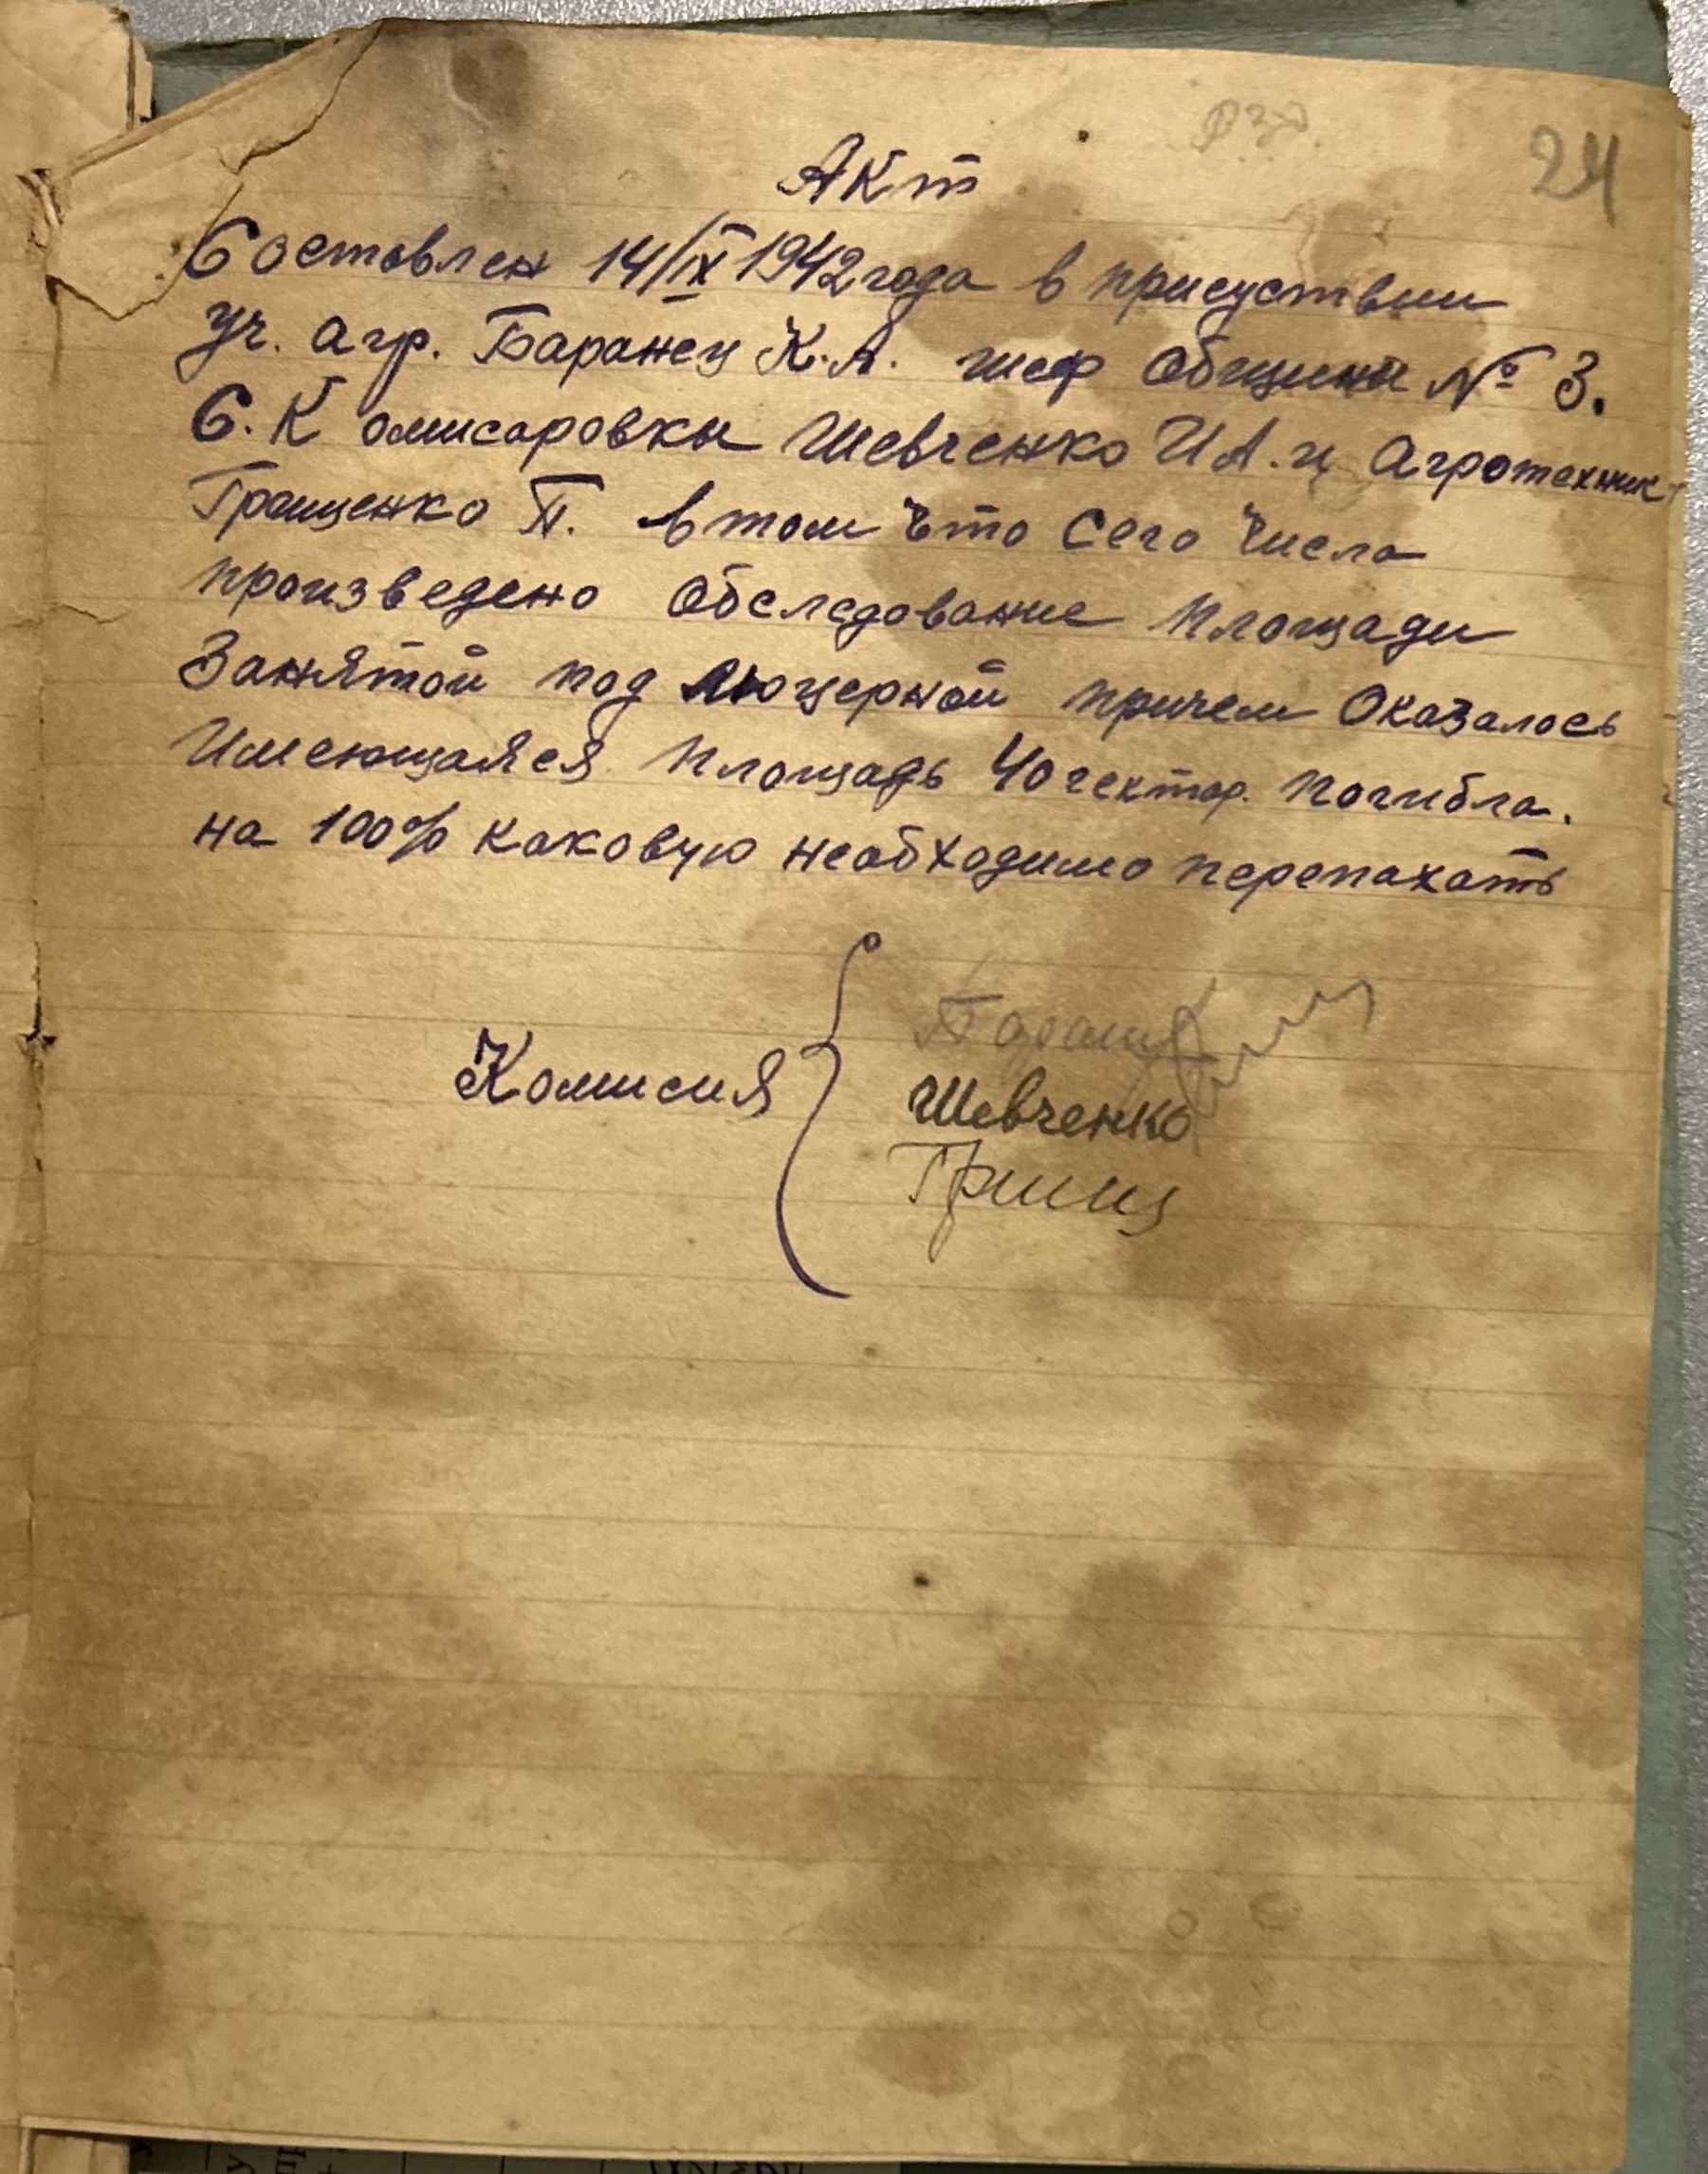 24
Акт
Составлен 14/IX 1942 года в присуствии
уч. агр. Баранец К.А. шеф Общины № 3.
С. Комисаровки Шевченко И А. и Агротехник
Грищенко П. в том что сего числа
произведено Обследование площади
Занятой под люцерной причем Оказалось
Имеющаяся площадь 40 гектар. погибла.
на 100% каковую необходимо перепахать
Комисия
Шевченко
Грищ